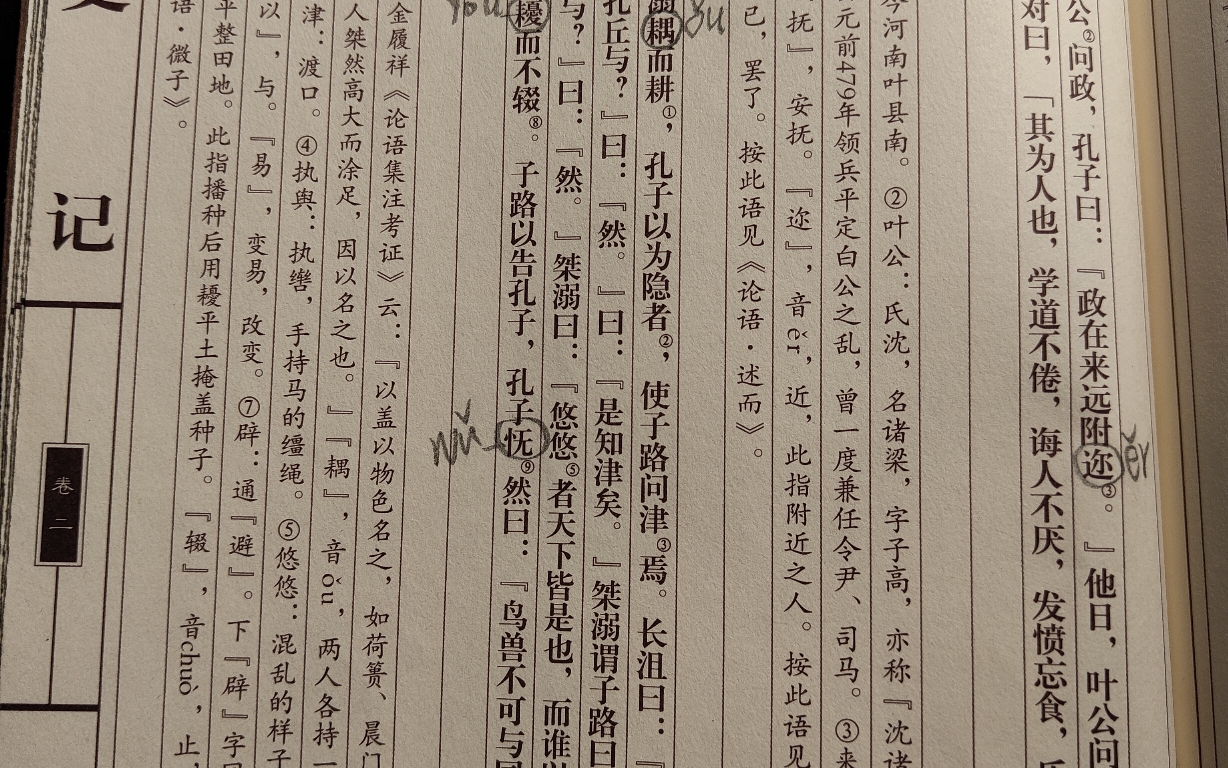 公②问政，孔子曰：『政在来远附迩③。』他日，叶公问
ěr
对曰，「其为人也，学道不倦，诲人不厌，发愤忘食，
今河南叶县南。②叶公：氏沈，名诸梁，字子高，亦称『沈诸
元前479年领兵平定白公之乱，曾一度兼任令尹、司马。③来
抚』，安抚。『迩』，音ěr，近，此指附近之人。按此语见
已，罢了。按此语见《论语·述而》。
溺耦而耕①，孔子以为隐者②，使子路问津③焉。长沮曰：『
ǒu
孔丘与？』曰：『然。』曰：『是知津矣。』桀溺谓子路曰
与？』曰：『然。』桀溺曰：『悠悠⑤者天下皆是也，而谁以
耰而不辍⑧。子路以告孔子，孔子怃⑨然曰：『鸟兽不可与同
yōu
wǔ
金履祥《论语集注考证》云：『以盖以物色名之，如荷蒉、晨门
人桀然高大而涂足，因以名之也。』『耦』，音ǒu，两人各持一
津：渡口。④执舆：执辔，手持马的缰绳。⑤悠悠：混乱的样子
以』，与。『易』，变易，改变。⑦辟：通『避』。下『辟』字
平整田地。此指播种后用耰平土掩盖种子。『辍』，音chuò，止，
语·微子》。
记
卷二